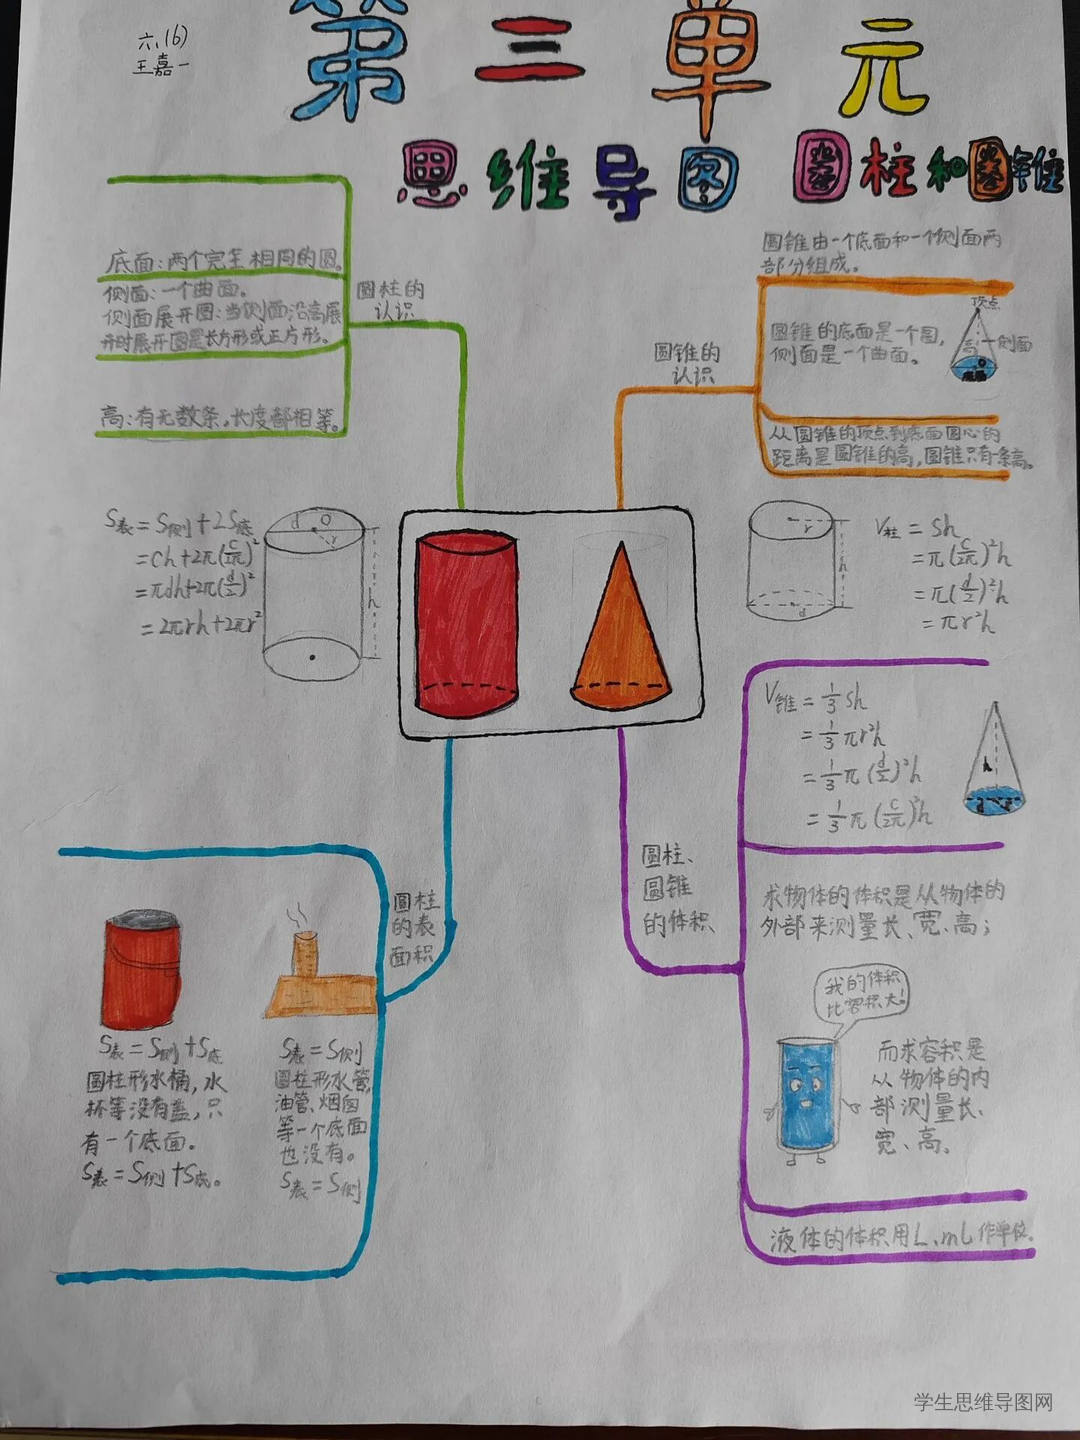 六、(6)
王嘉一
第三单元
思维导图 圆柱和圆锥
底面：两个完全相同的圆。
侧面：一个曲面。
侧面展开图：当侧面沿高展
开时展开图是长方形或正方形。
高：有无数条，长度都相等。
圆柱的
认识
圆锥由一个底面和一个侧面两
部分组成。
圆锥的底面是一个圆，
侧面是一个曲面。
顶点
高
侧面
从圆锥的顶点到底面圆心的
距离是圆锥的高，圆锥只有一条高。
圆锥的
认识
S表=S侧+2S底
=Ch+2π(C/2π)²
=πdh+2π(d/2)²
=2πrh+2πr²
d O
r
h
r
h
d
V柱=Sh
=π(C/2π)²h
=π(d/2)²h
=πr²h
V锥=1/3Sh
=1/3πr²h
=1/3π(d/2)²h
=1/3π(C/2π)²h
h
d r
圆柱、
圆锥
的体积、
求物体的体积是从物体的
外部来测量长、宽、高；
我的体积
比容积大！
而求容积是
从物体的内
部测量长、
宽、高。
液体的体积用L、mL作单位。
圆柱
的表
面积
S表=S侧+S底
圆柱形水桶，水
杯等没有盖，只
有一个底面。
S表=S侧+S底。
S表=S侧
圆柱形水管，
油管、烟囱
等一个底面
也没有。
S表=S侧
学生思维导图网